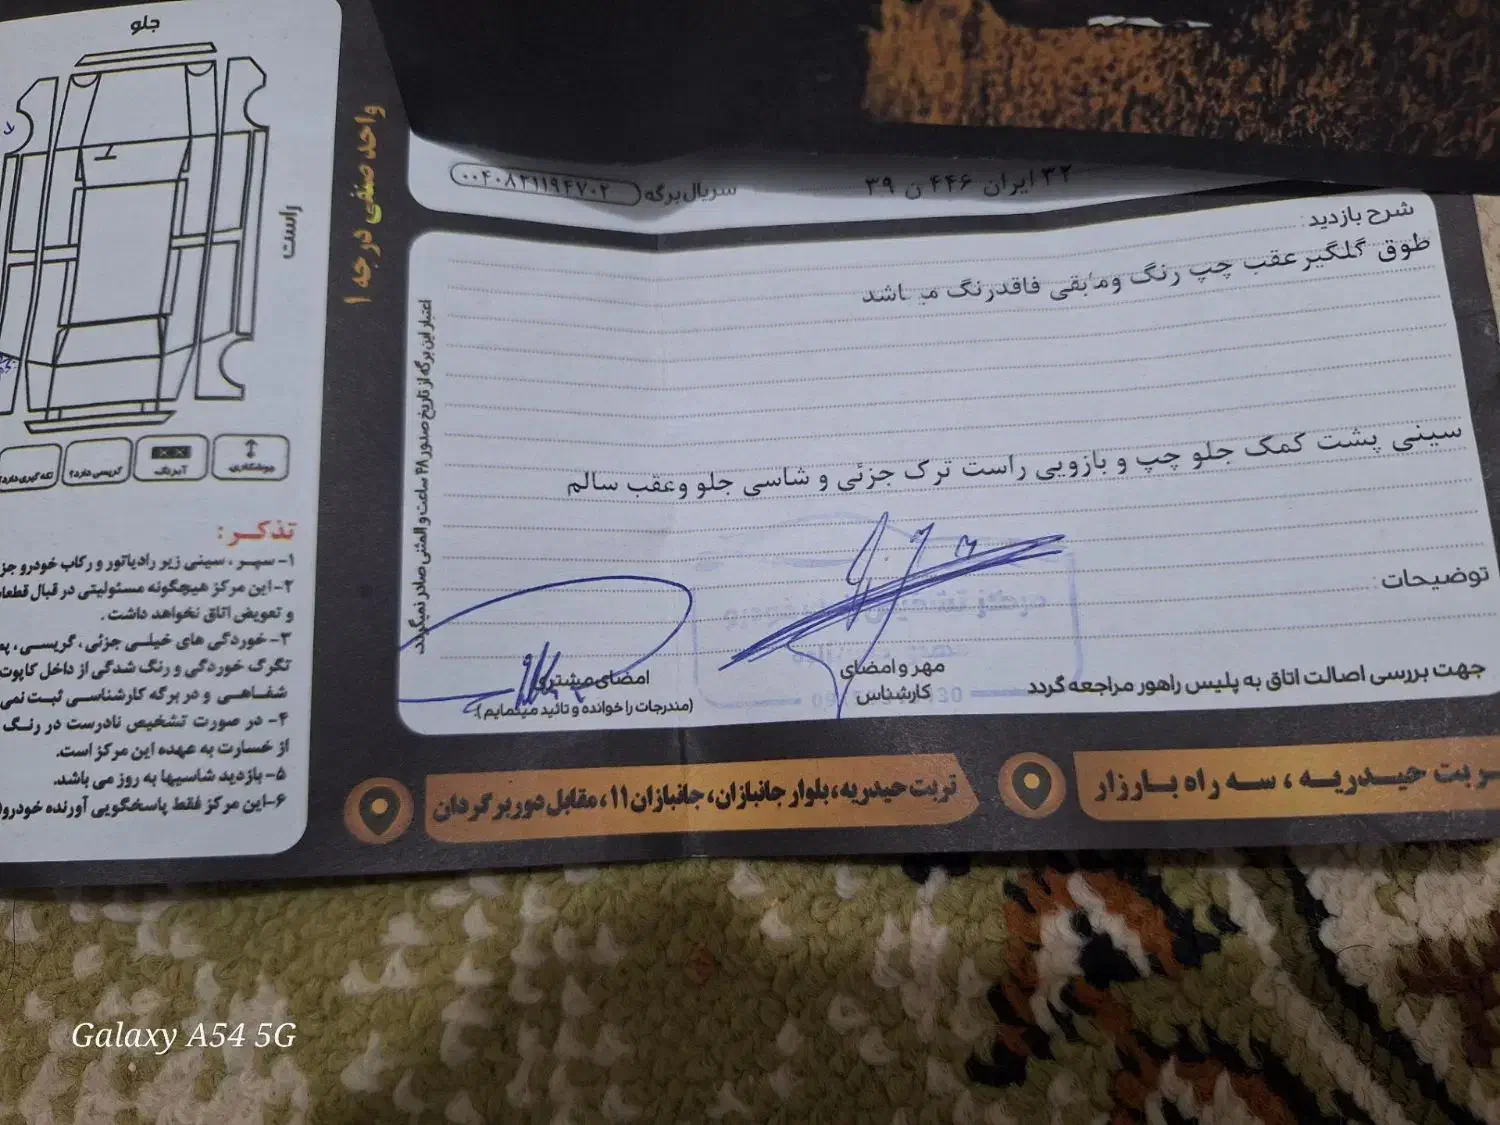 جلو
راست
جوشکاری
آبرنگ
گریسی دارد؟
تذکر:
۱- سپر، سینی زیر رادیاتور و رکاب خودرو
۲- این مرکز هیچگونه مسئولیتی در قبال
و تعویض اتاق نخواهد داشت.
۳- خوردگی های خیلی جزئی، گریسی،
تگرگ خوردگی و رنگ شدگی از داخل کاپوت
شفاهی و در برگه کارشناسی ثبت نمی
۴- در صورت تشخیص نادرست در رنگ
از خسارت به عهده این مرکز است.
۵- بازدید شاسیها به روز می باشد.
۶- این مرکز فقط پاسخگویی آورنده
واحد صنفی درجه ۱
۳۲ ایران ۴۴۶ ن ۳۹
سریال برگه
اعتبار این برگه از تاریخ صدور ۴۸ ساعت و المثنی صادر نمیگردد
شرح بازدید:
طوق گلگیر عقب چپ رنگ ومابقی فاقدرنگ میباشد
سینی پشت کمک جلو چپ و بازویی راست ترک جزئی و شاسی جلو وعقب سالم
توضیحات:
جهت بررسی اصالت اتاق به پلیس راهور مراجعه گردد
مهر و امضای
کارشناس
امضای مشتری
(مندرجات را خوانده و تائید مینمایم)
تربت حیدریه، سه راه بارزار
تربت حیدریه، بلوار جانبازان، جانبازان ۱۱، مقابل دوربرگردان
Galaxy A54 5G